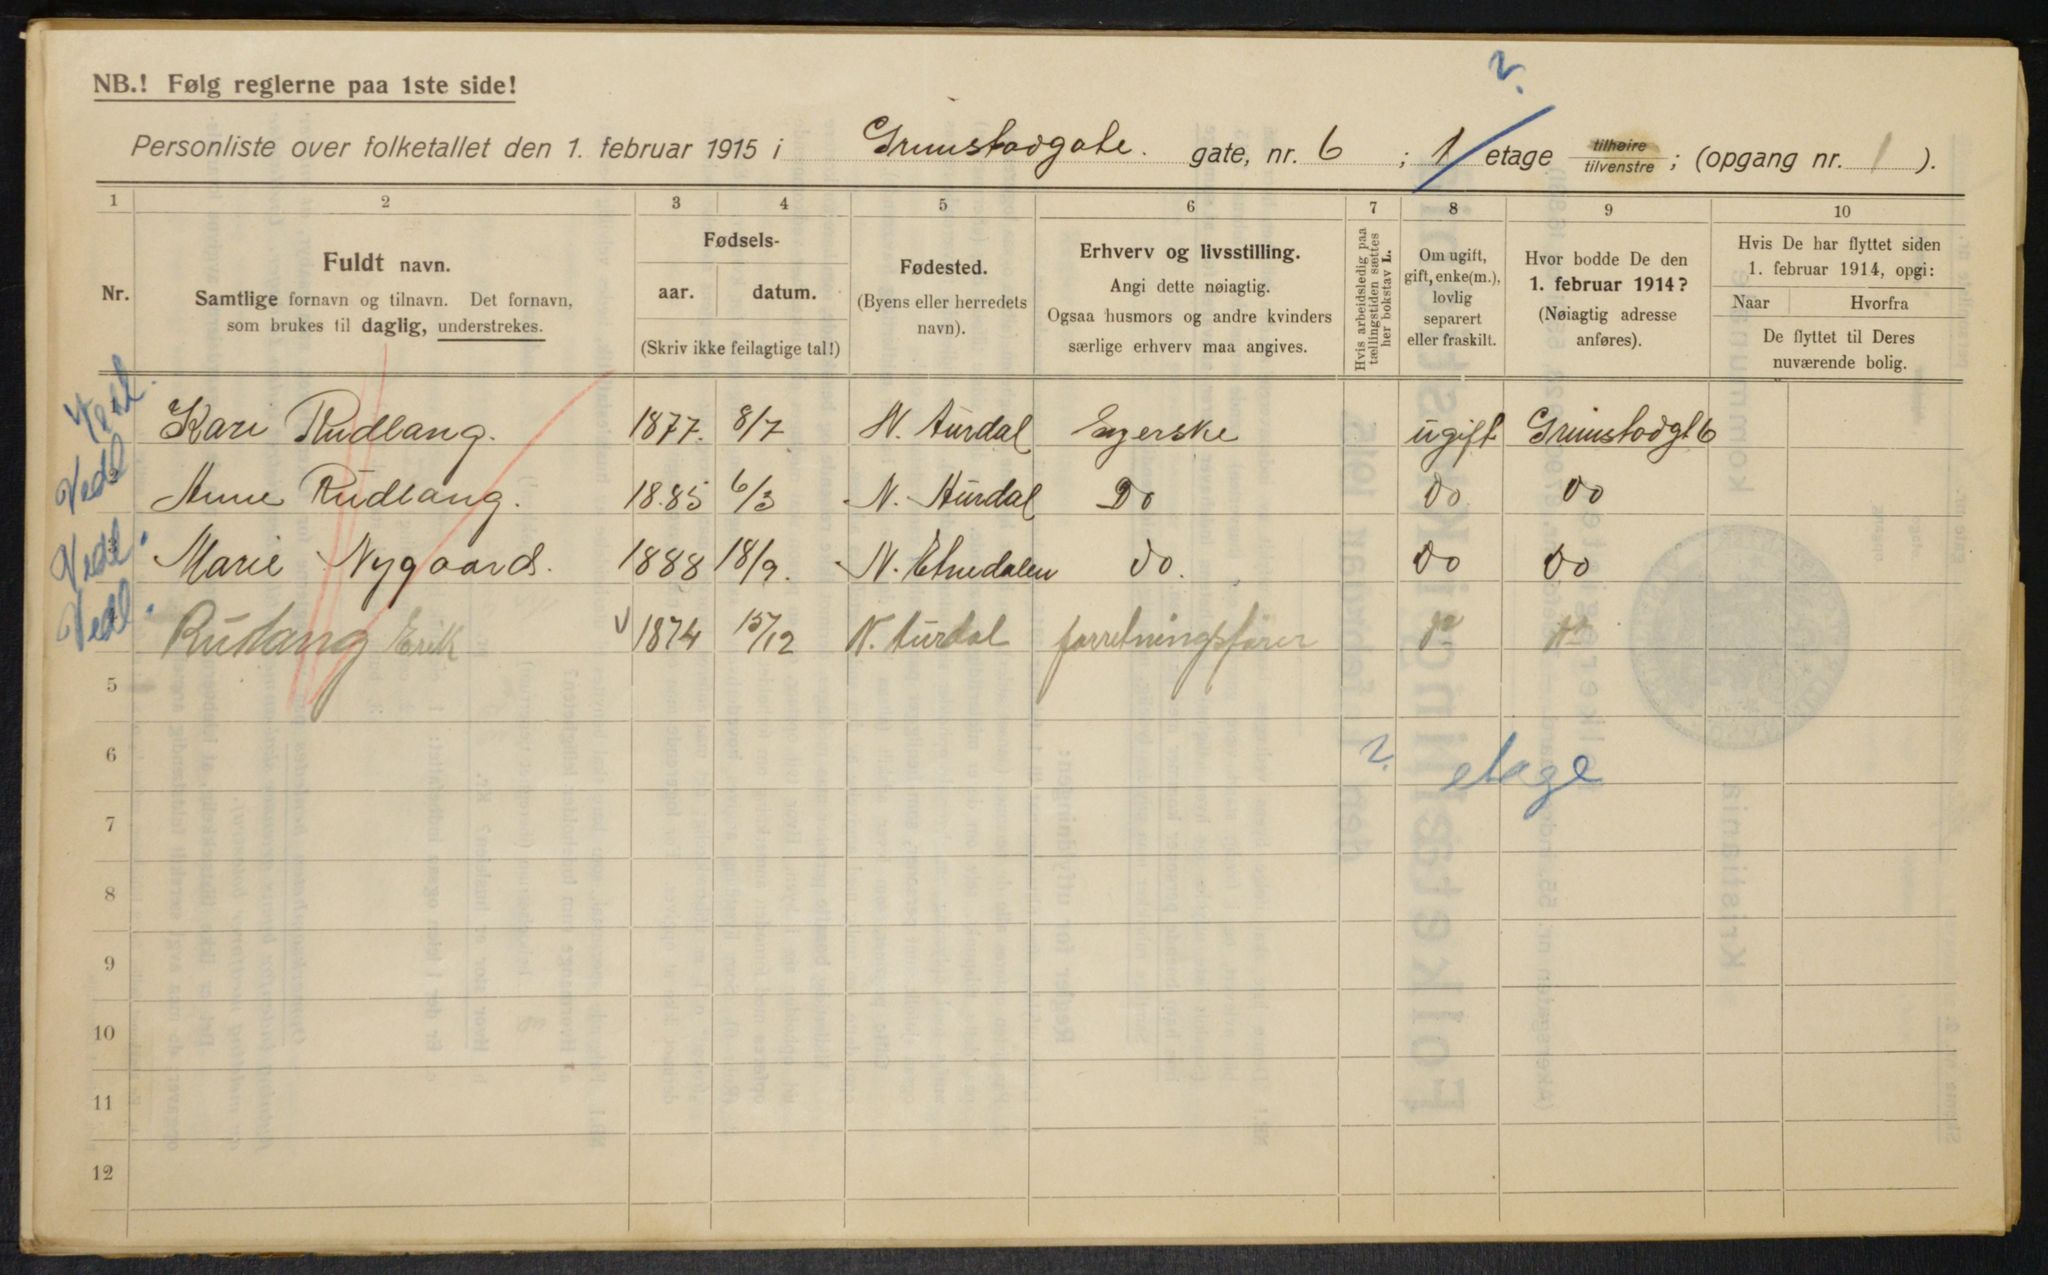 2.
NB.! Følg reglerne paa 1ste side!
Personliste over folketallet den 1. februar 1915 i Grimstadgate. gate, nr. 6 ; 1 etage tilhøire tilvenstre ; (opgang nr. 1 ).
1 2 3 4 5 6 7 8 9 10
Nr.
Fuldt navn.
Samtlige fornavn og tilnavn. Det fornavn,
som brukes til daglig, understrekes.
Fødsels-
aar. datum.
(Skriv ikke feilagtige tal!)
Fødested.
(Byens eller herredets
navn).
Erhverv og livsstilling.
Angi dette nøiagtig.
Ogsaa husmors og andre kvinders
særlige erhverv maa angives.
Hvis arbeidsledig paa
tællingstiden sættes
her bokstav L.
Om ugift,
gift, enke(m.),
lovlig
separert
eller fraskilt.
Hvor bodde De den
1. februar 1914?
(Nøiagtig adresse
anføres).
Hvis De har flyttet siden
1. februar 1914, opgi:
Naar Hvorfra
De flyttet til Deres
nuværende bolig.
Vedl. Kari Rudlang. 1877. 8/7 N. Aurdal Syerske ugift Grimstadgt 6
Vedl. Anne Rudlang. 1885 6/3 N. Aurdal Do do do
Vedl. Marie Nygaard. 1888 18/9. N. Etnedalen do. do do
Vedl. Rudlang Erik 1874 15/12 N. Aurdal forretningsfører
5
6 2. etage
7
8
9
10
11
12